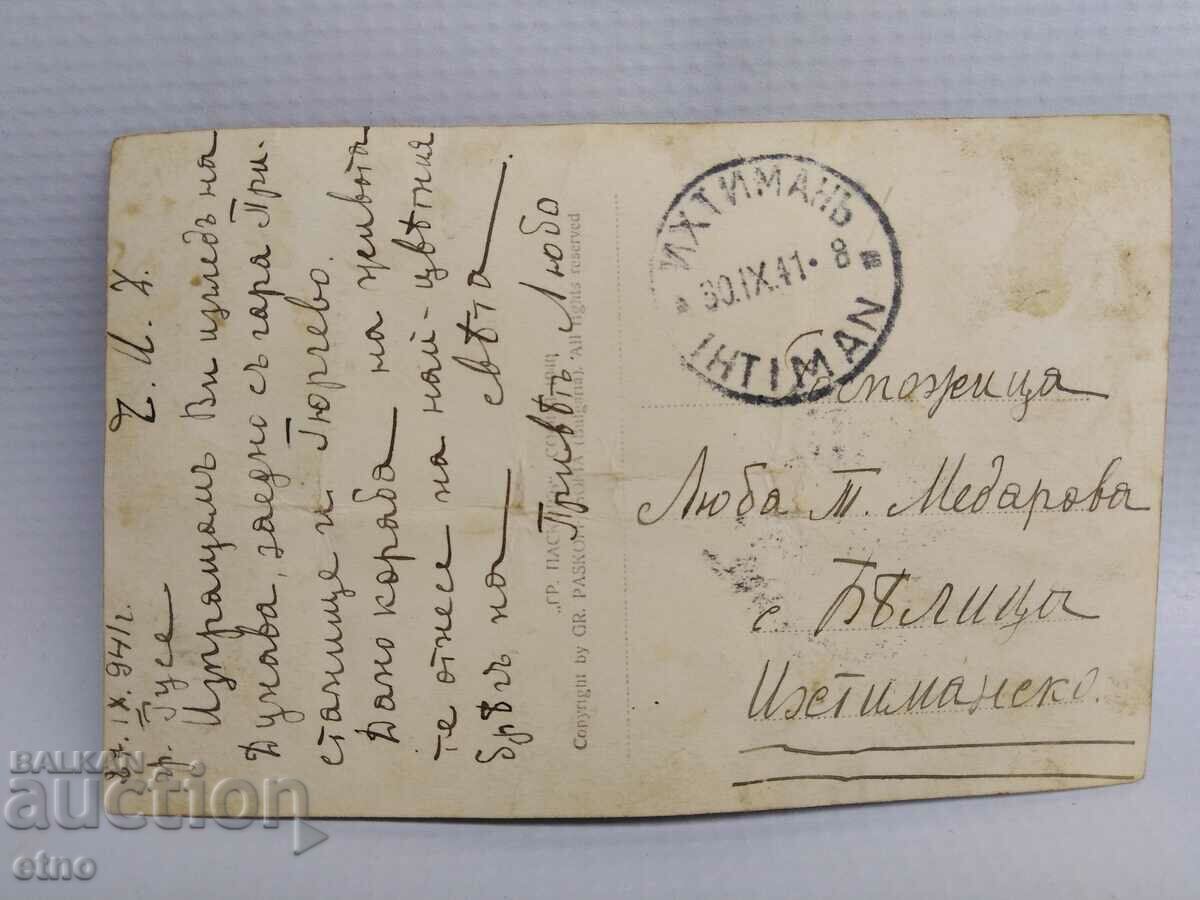 27.IX.941 г.
гр. Русе
Ч. И. Х.
Изпращамъ Ви изгледъ на
Дунава, заедно съ гара При-
станище и Гюргево.
Дано кораба на живота
те отнесе на най-цвѣтния
брѣгъ на свѣта.
Привѣтъ: Любо
Copyright by GR. PASKOFF (Bulgaria). All rights reserved
ИХТИМАНЪ
30.IX.41 • 8
IHTIMAN
Госпожица
Люба Т. Медарова
с. Бѣлица
Ихтиманско.
BALKAN
auction
etno